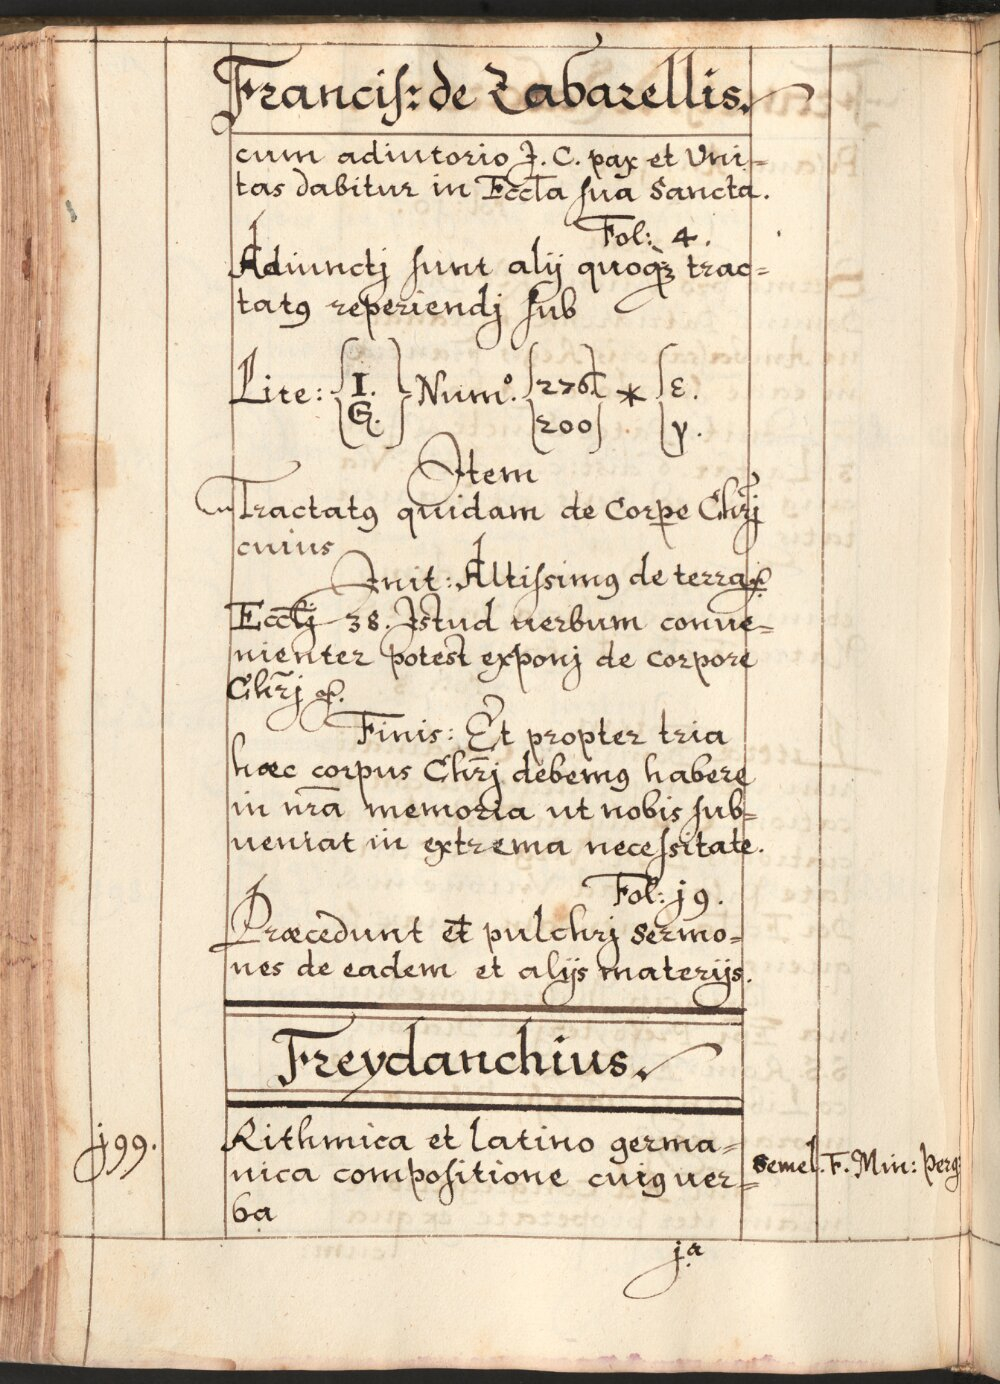 Francis: de Zabarellis.
cum adiutorio J. C. pax et Uni=
tas dabitur in Eccl̄a sua Sancta.
Fol: 4.
Adiunctj sunt alij quoqȝ trac=
tatꝰ reperiendj sub
Lite: { I. } Num.º { 276 } * { ε.
{ G. } { 200 } { γ.
Item
Tractatꝰ quidam de Corꝑe Chr̄j
cuius
Init: Altissimꝰ de terra &.
Eccl̄j 38. Istud uerbum conue=
nienter potest exponj de corpore
Chr̄j &.
Finis: Et propter tria
hæc corpus Chr̄j debemꝰ habere
in nr̄a memoria ut nobis sub=
ueniat in extrema necessitate.
Fol: j9.
Præcedunt et pulchrj sermo=
nes de eadem et alijs materijs.
Freydanchius.
j99. Rithmica et latino germa=
nica compositione cuiꝰ uer= semel. F. Min: perg:
ba
j.a